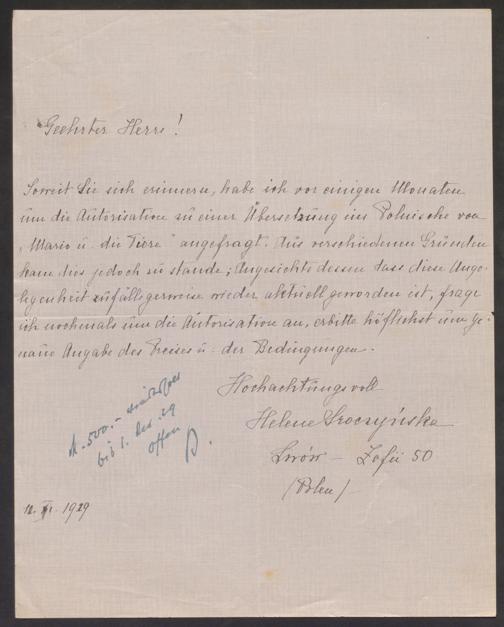 Geehrter Herr!
Soweit Sie sich erinnern, habe ich vor einigen Monaten
um die Autorisation zu einer Übersetzung ins Polnische von
„Mario u. die Tiere" angefragt. Aus verschiedenen Gründen
kam dies jedoch zu stande; Angesichts dessen dass diese Ange-
legenheit zufälligerweise wieder aktuell geworden ist, frage
ich nochmals um die Autorisation an, erbitte höflichst um ge-
naue Angabe des Preises u. der Bedingungen.
Hochachtungsvoll
Helene Sroczyńska
Lwów – Zofii 50
(Polen)
M. 500.–
bis 1. Dez. 29
offen
12. XI. 1929